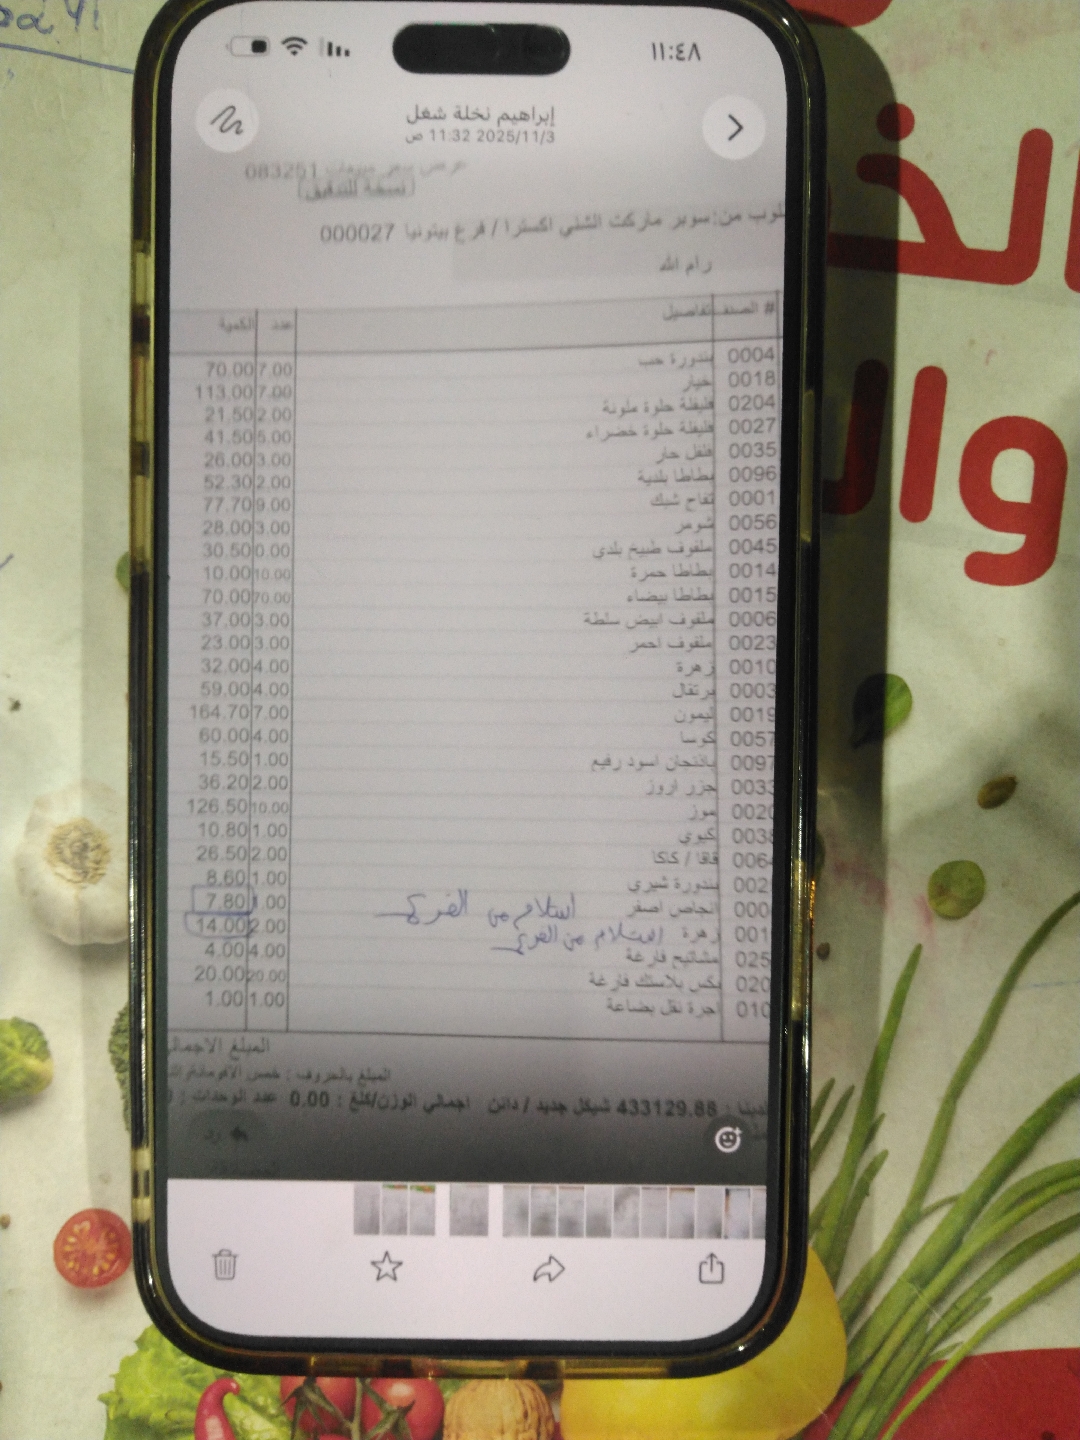 ١١:٤٨
إبراهيم نخلة شغل
2025/11/3 11:32 ص
عرض سعر مبيعات 083251
(نسخة للتدقيق)
لوب من: سوبر ماركت الشني اكسترا / فرع بيتونيا 000027
رام الله
# الصنف تفاصيل عدد الكمية
0004 بندورة حب 7.00 70.00
0018 خيار 7.00 113.00
0204 فليفلة حلوة ملونة 2.00 21.50
0027 فليفلة حلوة خضراء 5.00 41.50
0035 فلفل حار 3.00 26.00
0096 بطاطا بلدية 2.00 52.30
0001 تفاح شبك 9.00 77.70
0056 شومر 3.00 28.00
0045 ملفوف طبيخ بلدي 0.00 30.50
0014 بطاطا حمرة 10.00 10.00
0015 بطاطا بيضاء 70.00 70.00
0006 ملفوف ابيض سلطة 3.00 37.00
0023 ملفوف احمر 3.00 23.00
0010 زهرة 4.00 32.00
0003 برتقال 4.00 59.00
0019 ليمون 7.00 164.70
0057 كوسا 4.00 60.00
0097 باذنجان اسود رفيع 1.00 15.50
0033 جزر اروز 2.00 36.20
0020 موز 10.00 126.50
0038 كيوي 1.00 10.80
0064 قاقا / كاكا 2.00 26.50
002 بندورة شيري 1.00 8.60
000 انجاص اصفر استلام من الفرع 1.00 7.80
001 زهرة استلام من الفرع 2.00 14.00
025 مشاتيح فارغة 4.00 4.00
020 بكس بلاستك فارغة 20.00 20.00
010 اجرة نقل بضاعة 1.00 1.00
المبلغ الاجمالي
المبلغ بالحروف : خمس الاف
لدينا : 433129.88 شيكل جديد / دائن اجمالي الوزن/كلغ : 0.00 عدد الوحدات :
رد
الخ
وال